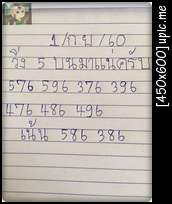 1/ก.ย/60
วิ่ง 5 บนมาแน่ครับ
576 596 376 396
476 486 496
เน้น 586 386
[450x600] upic.me